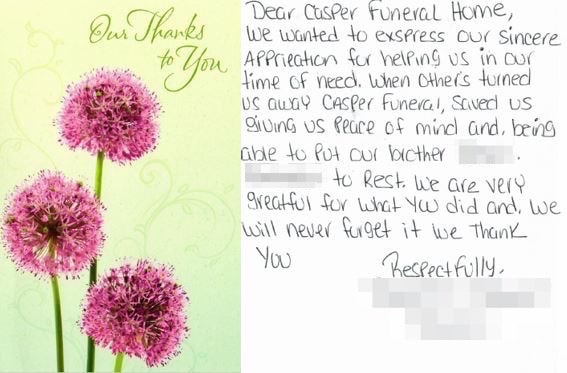 Our Thanks
to You
Dear Casper Funeral Home,
We wanted to exspress our sincere
Apprieation for helping us in our
time of need. When other's turned
us away Casper Funeral, Saved us
giving us Peace of mind and, being
able to Put our brother .
to Rest. We are very
greatful for what you did and, we
will never forget it we Thank
You
Respectfully.